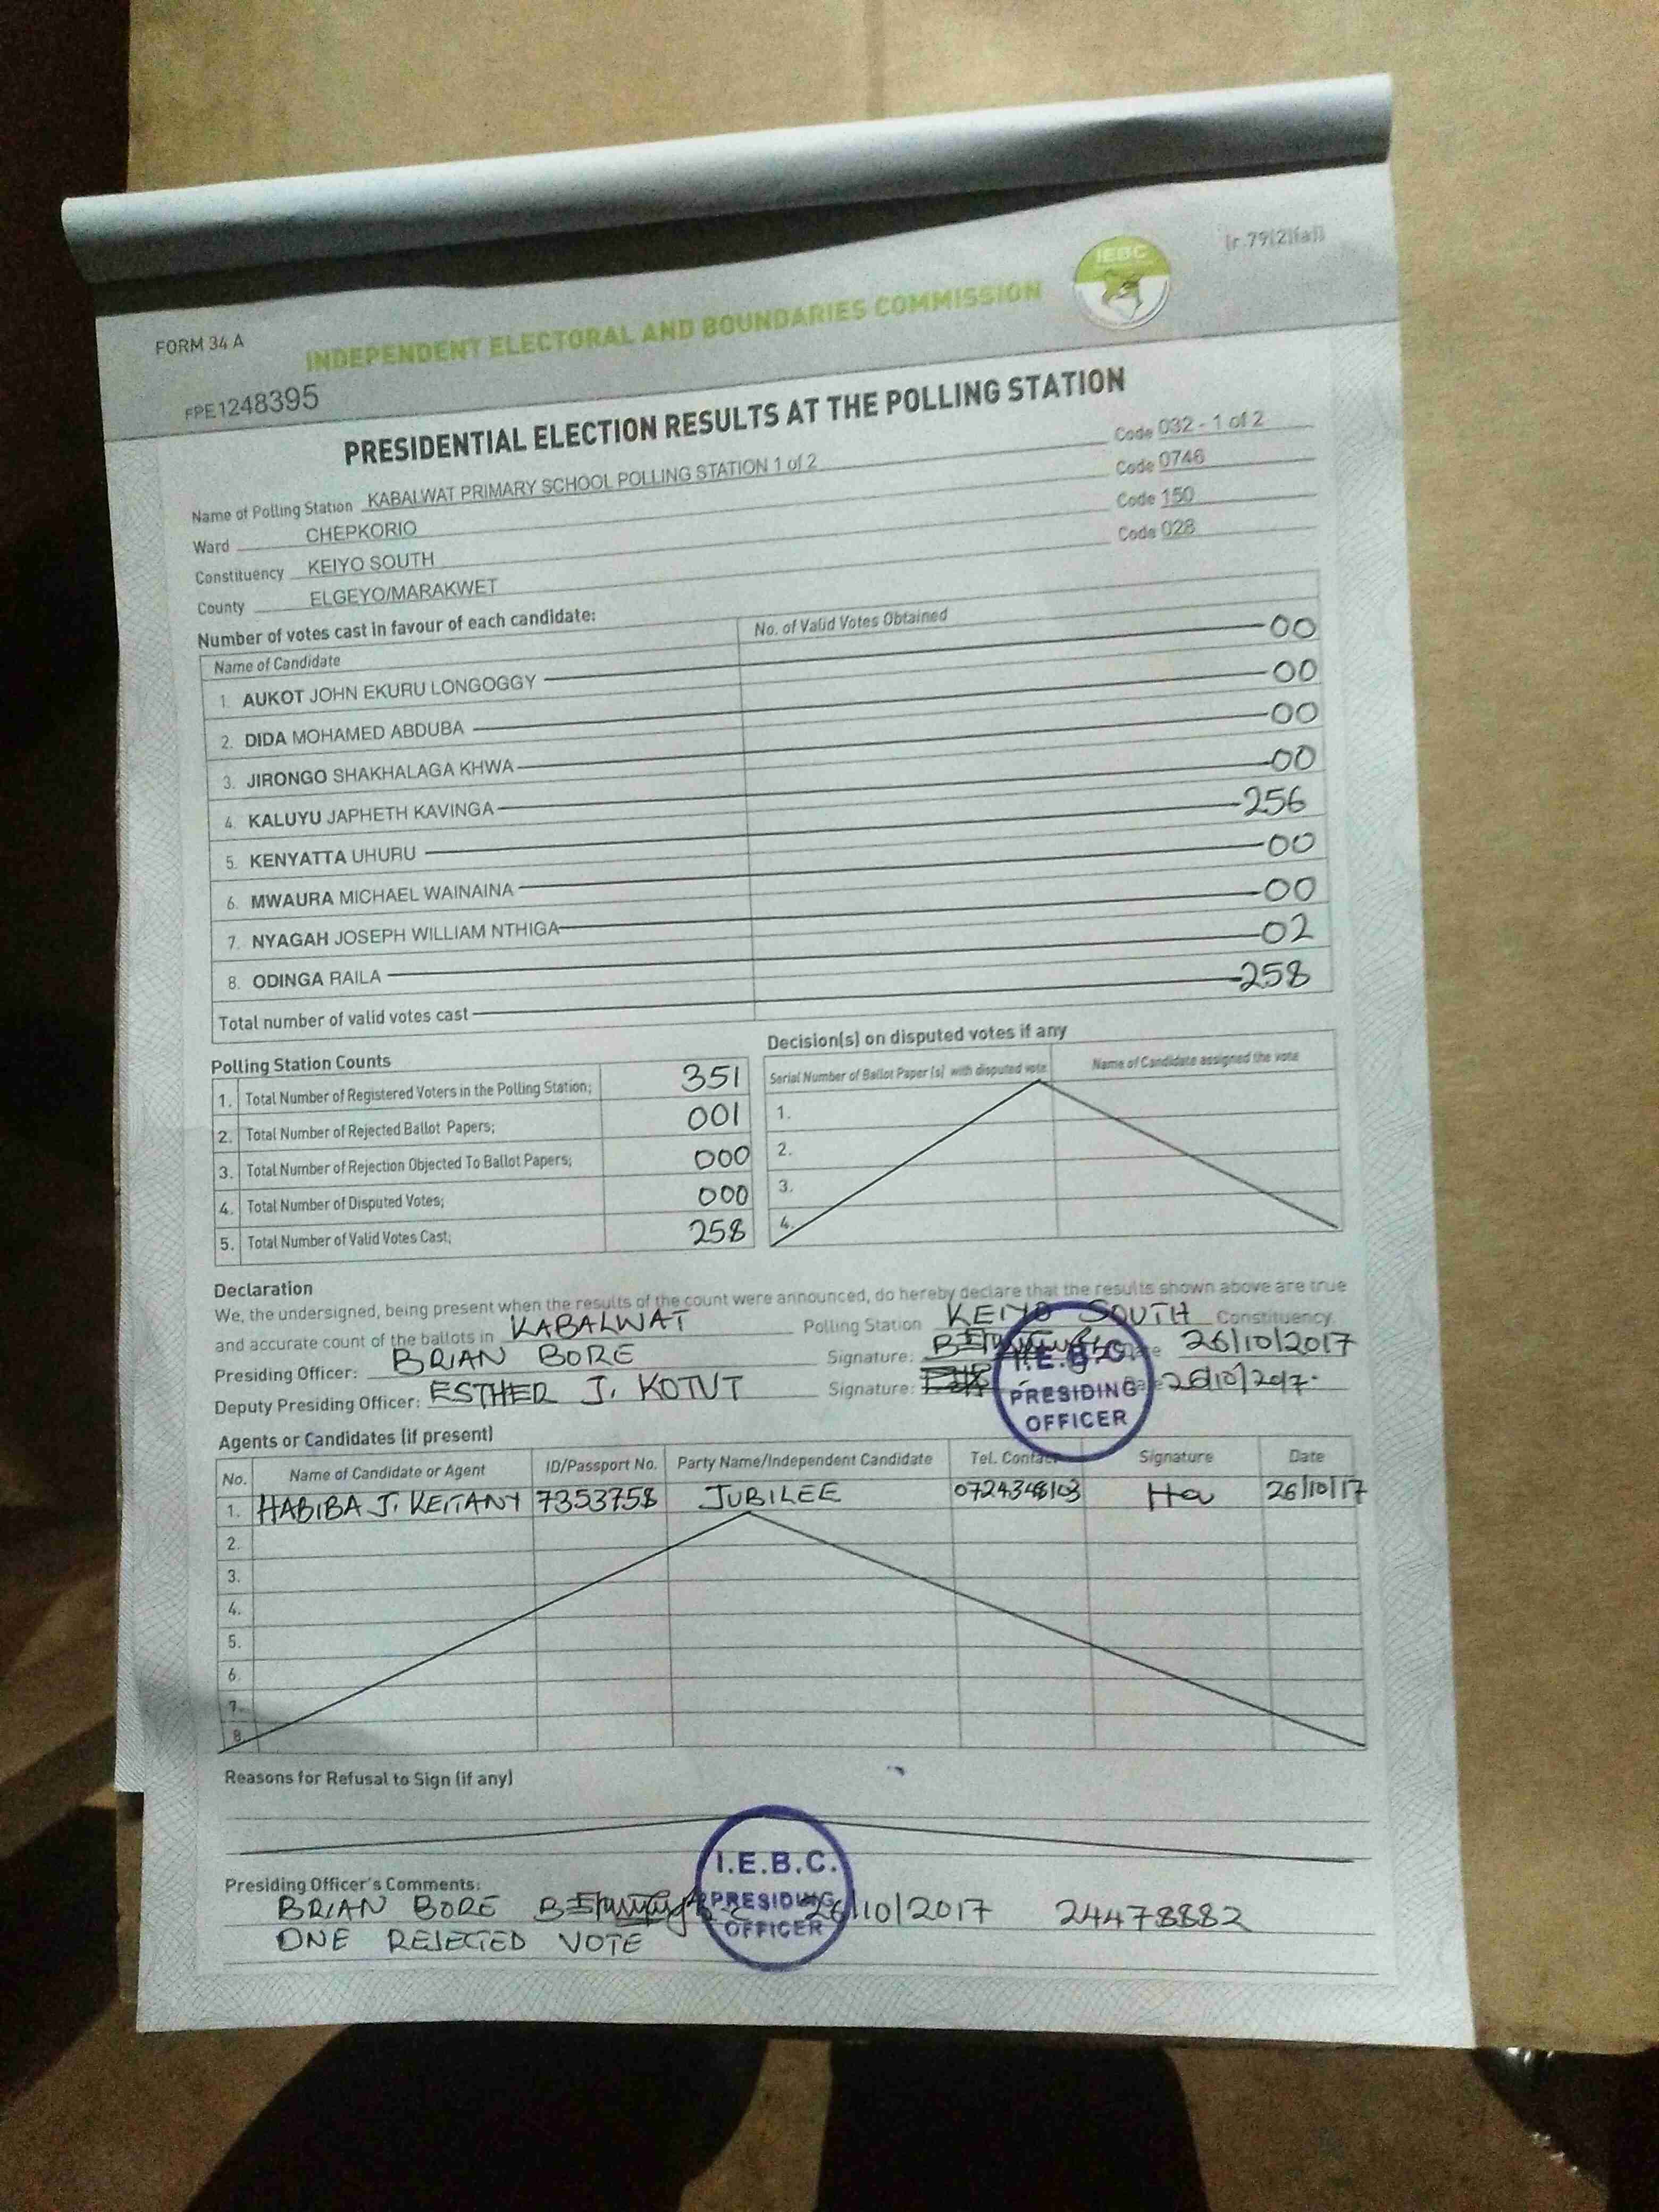 [r.79(2)(a)]
IEBC
FORM 34 A
INDEPENDENT ELECTORAL AND BOUNDARIES COMMISSION
FPE1248395
PRESIDENTIAL ELECTION RESULTS AT THE POLLING STATION
Name of Polling Station KABALWAT PRIMARY SCHOOL POLLING STATION 1 of 2 Code 032 - 1 of 2
Ward CHEPKORIO Code 0746
Constituency KEIYO SOUTH Code 150
County ELGEYO/MARAKWET Code 028
Number of votes cast in favour of each candidate:
Name of Candidate No. of Valid Votes Obtained
1. AUKOT JOHN EKURU LONGOGGY 00
2. DIDA MOHAMED ABDUBA 00
3. JIRONGO SHAKHALAGA KHWA 00
4. KALUYU JAPHETH KAVINGA 00
5. KENYATTA UHURU 256
6. MWAURA MICHAEL WAINAINA 00
7. NYAGAH JOSEPH WILLIAM NTHIGA 00
8. ODINGA RAILA 02
Total number of valid votes cast 258
Polling Station Counts
1. Total Number of Registered Voters in the Polling Station; 351
2. Total Number of Rejected Ballot Papers; 001
3. Total Number of Rejection Objected To Ballot Papers; 000
4. Total Number of Disputed Votes; 000
5. Total Number of Valid Votes Cast; 258
Decision(s) on disputed votes if any
Serial Number of Ballot Paper (s) with disputed vote Name of Candidate assigned the vote
1.
2.
3.
4.
Declaration
We, the undersigned, being present when the results of the count were announced, do hereby declare that the results shown above are true
and accurate count of the ballots in KABALWAT Polling Station KEIYO SOUTH Constituency.
Presiding Officer: BRIAN BORE Signature: Date 26/10/2017
Deputy Presiding Officer: ESTHER J. KOTUT Signature: Date 26/10/2017.
I.E.B.C.
PRESIDING
OFFICER
Agents or Candidates (if present)
No. Name of Candidate or Agent ID/Passport No. Party Name/Independent Candidate Tel. Contact Signature Date
1. HABIBA J. KEITANY 7353758 JUBILEE 26/10/17
2.
3.
4.
5.
6.
7.
8.
Reasons for Refusal to Sign (if any)
I.E.B.C.
PRESIDING
OFFICER
Presiding Officer's Comments:
BRIAN BORE 26/10/2017 24478882
ONE REJECTED VOTE